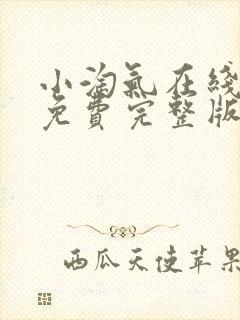 小淘气在线
免费完整版
西瓜天使苹果